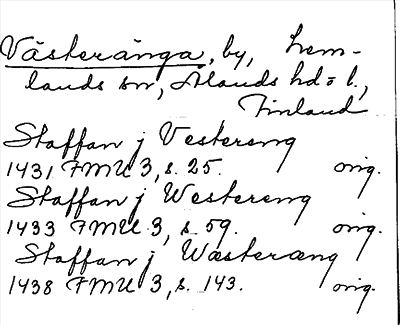 Västerånga, by, Lem-
lands sn, Ålands hd o l.,
Finland
Staffan j Vestereng
1431 FMU 3, s. 25. orig.
Staffan j Westereng
1433 FMU 3, s. 59. orig.
Staffan j Wæsteræng
1438 FMU 3, s. 143. orig.